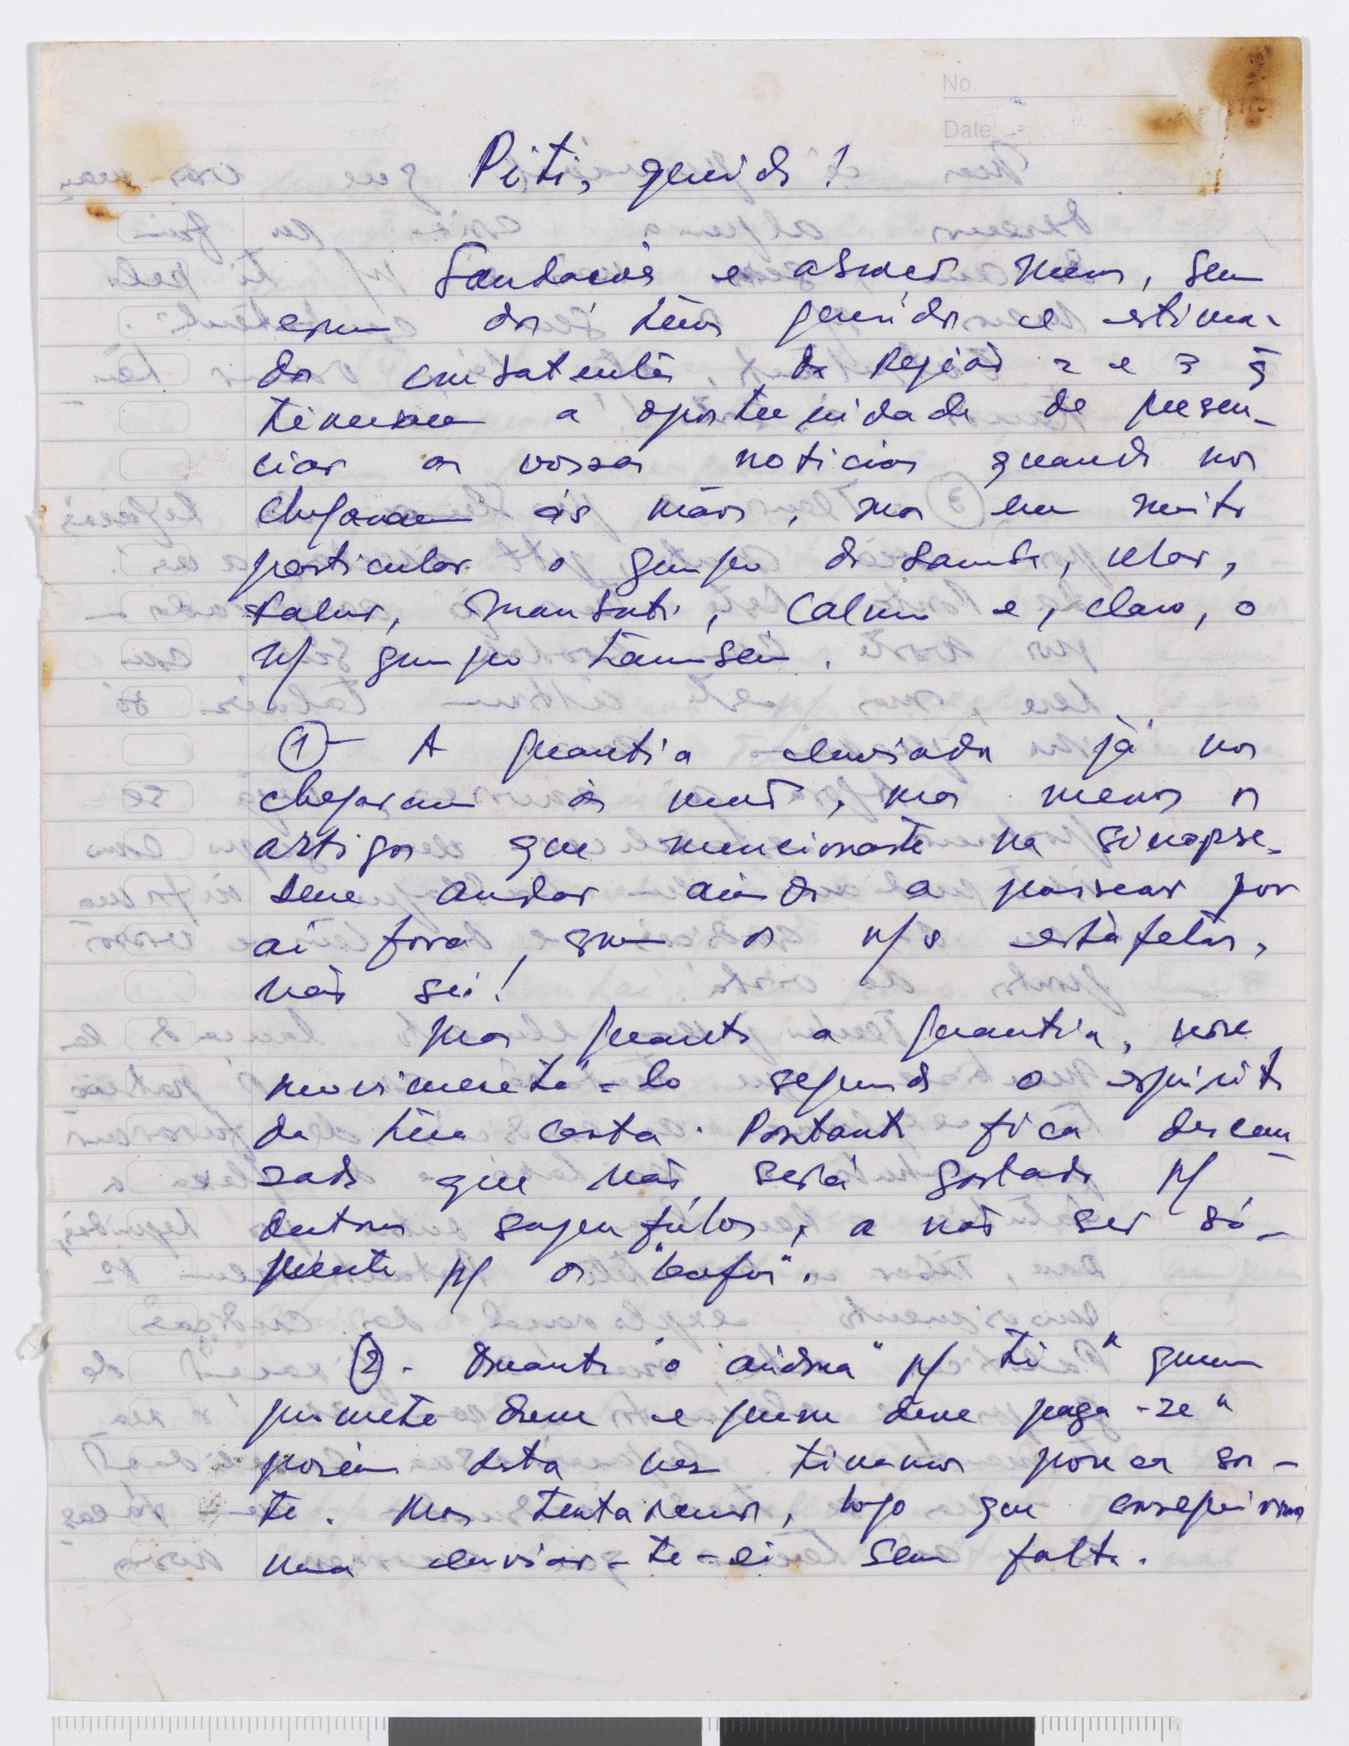 No.
Date
Piti, querido!
Saudacoês e abraços meus, bem
como dos teus queridos e estima-
dos combatentes, da Região 2 e 3 q
tiveram a oportunidade de presen-
ciar as vossas noticias quando nos
chegaram ás mãos, mas em muito
particular o grupo do
Calma e, claro, o
n/ grupo também.
① - A quantia enviada já nos
chegaram ás mãos, mas menos os
artigos que mencionaste na sinopse.
Deve andar ainda a passear por
aí fora, com os n/s estafetas,
não sei!
Mas quanto a quantia, vou
movimentá-lo segundo o espirito
da tua carta. Portanto fica descan
sado que não será gastado p/
outros a não ser só-
mente p/ os
② - Quanto o p/ ti "quem
promete deve e quem deve paga-se"
porém desta vez tivemos pouca sor-
te. Mas tentaremos, logo que conseguirmos
uma enviar-te-ei sem falta.